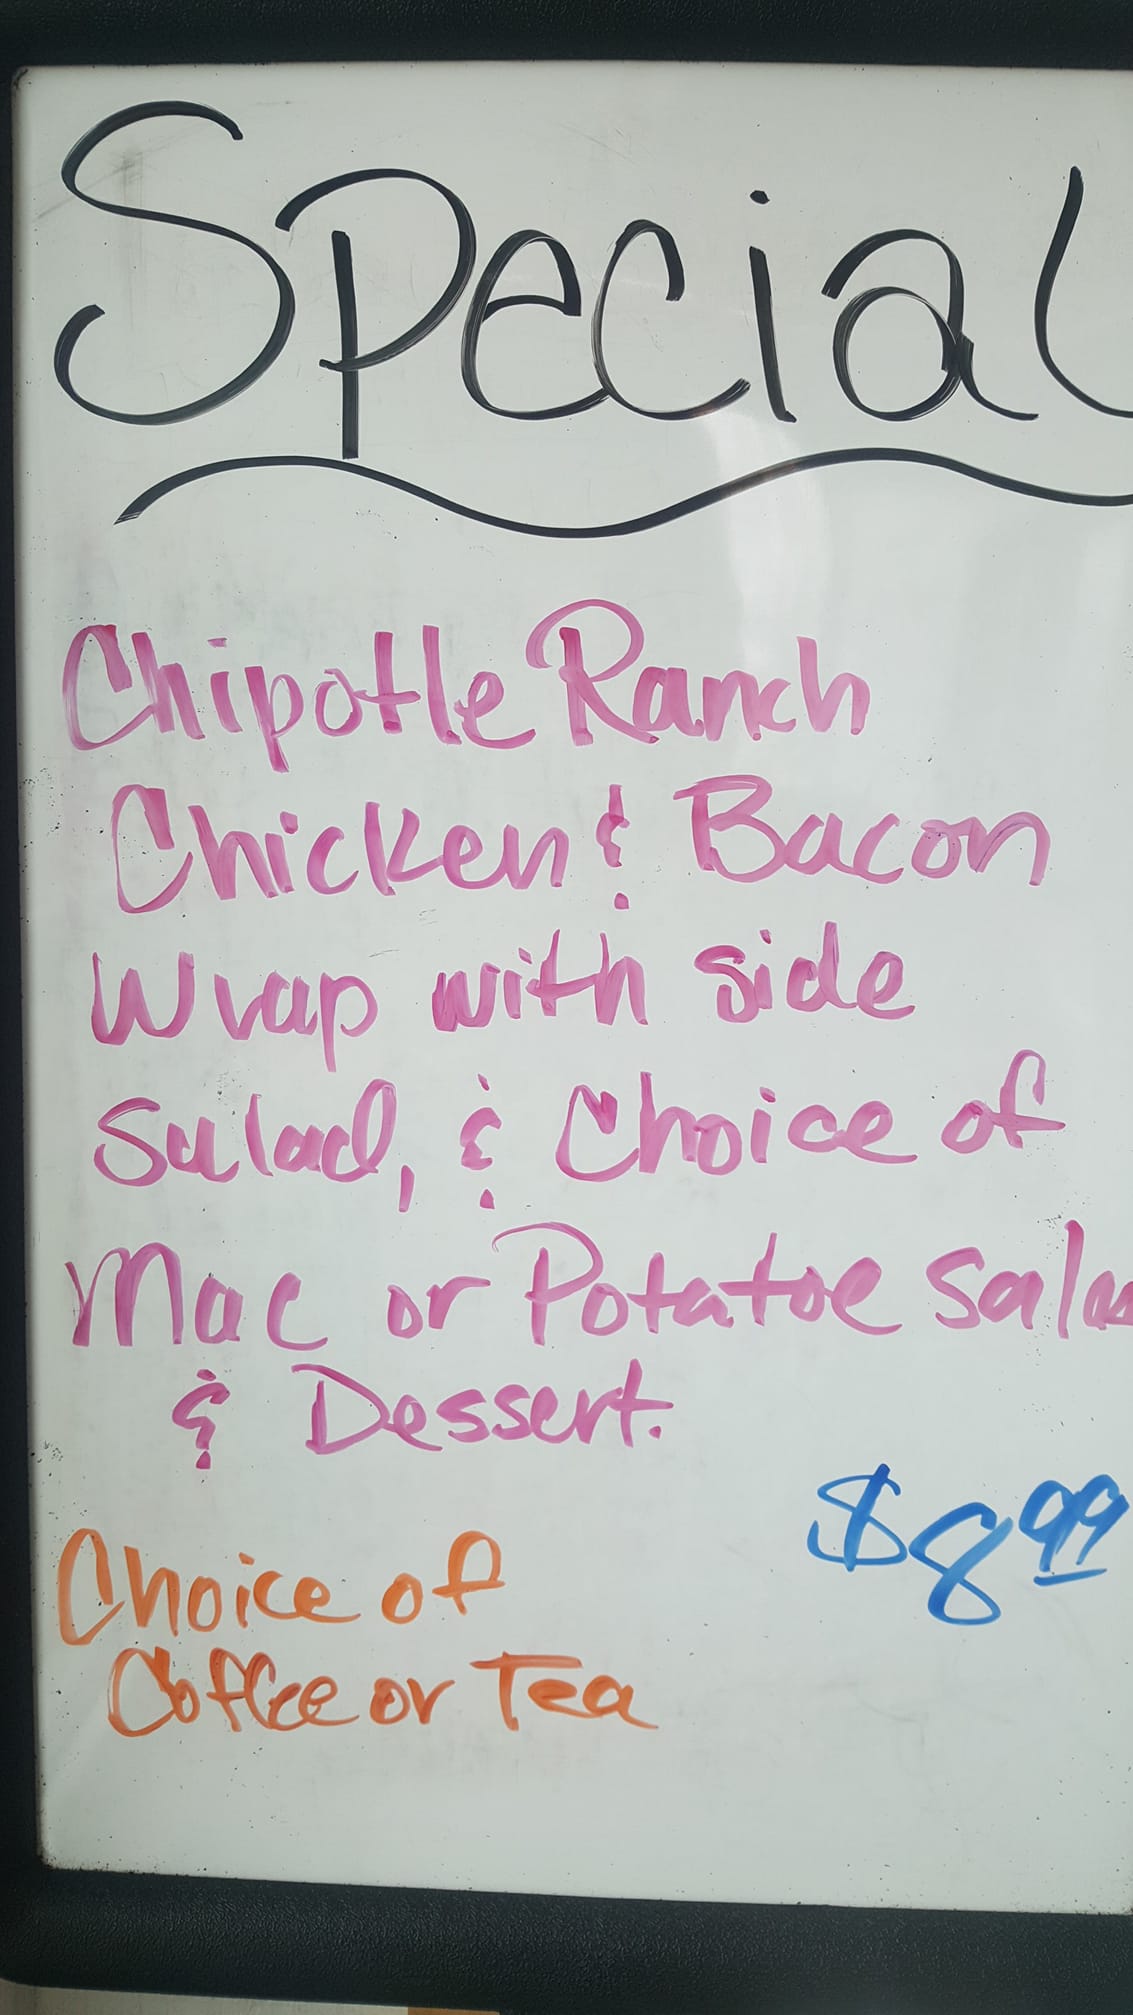 Special
Chipotle Ranch
Chicken & Bacon
Wrap with side
Salad, & Choice of
Mac or Potatoe Sala
& Dessert.
$8.99
Choice of
Coffee or Tea